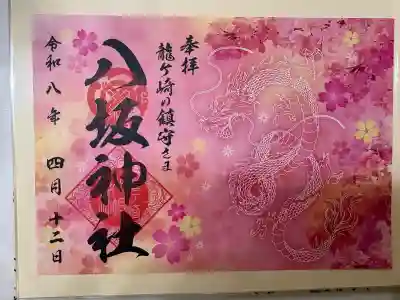 奉拝
龍ケ崎の鎮守さま
八坂神社
令和八年 四月 十二日